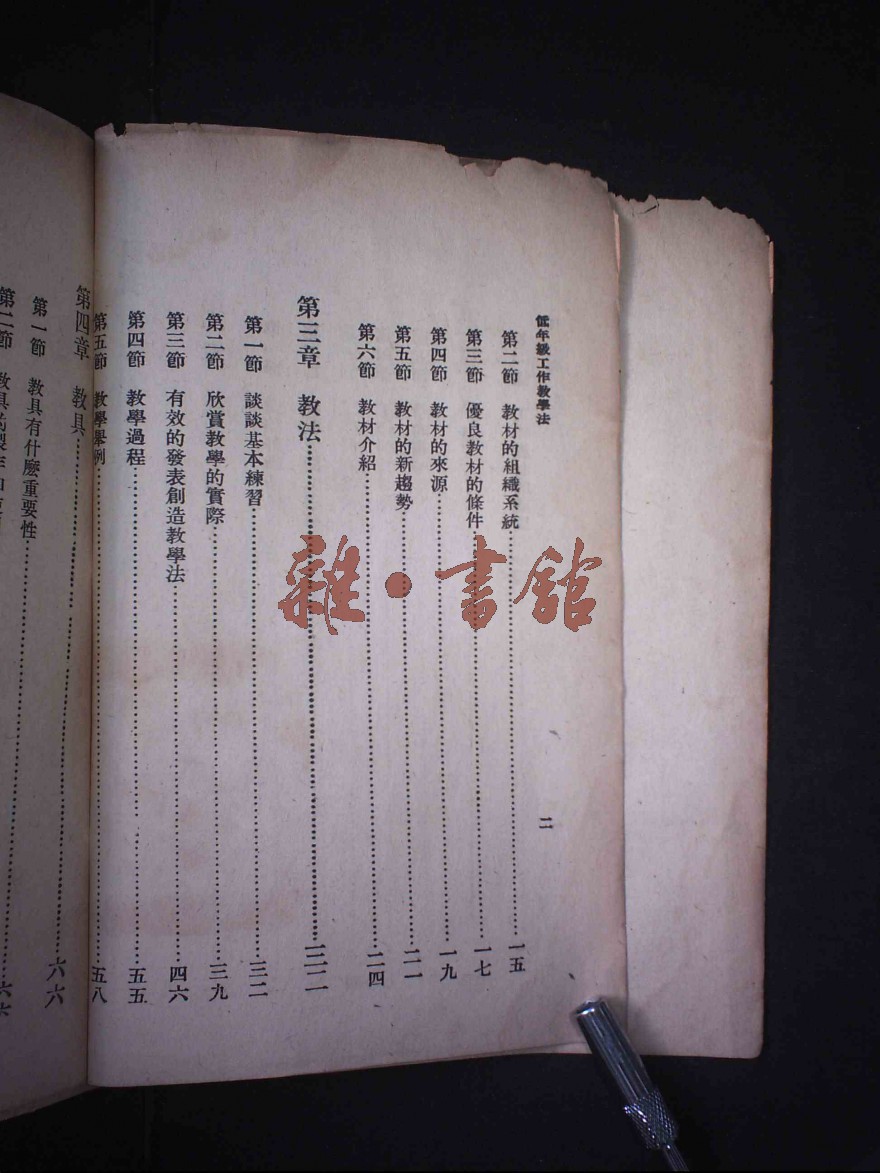 低年級工作教學法
二
第二節 教材的組織系統……一五
第三節 優良教材的條件……一七
第四節 教材的來源……一九
第五節 教材的新趨勢……二一
第六節 教材介紹……二四
第三章 教法……三二
第一節 談談基本練習……三二
第二節 欣賞教學的實際……三九
第三節 有效的發表創造教學法……四六
第四節 教學過程……五五
第五節 教學舉例……五八
第四章 教具……六六
第一節 教具有什麼重要性……六六
第二節 教具
雜·書館